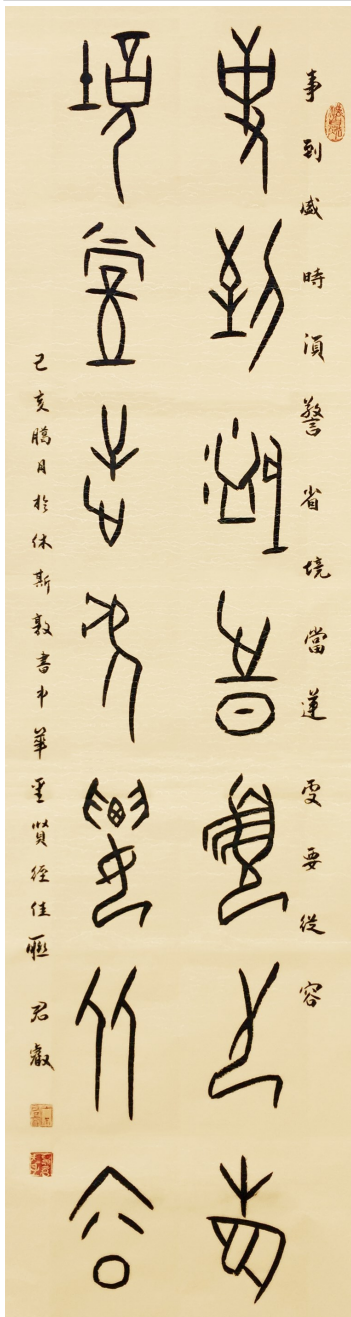 事到盛時須警省境當逆處要從容
事到盛時須警省
境當逆處要從容
己亥臈月於休斯敦書中華聖賢經佳聯 君叡